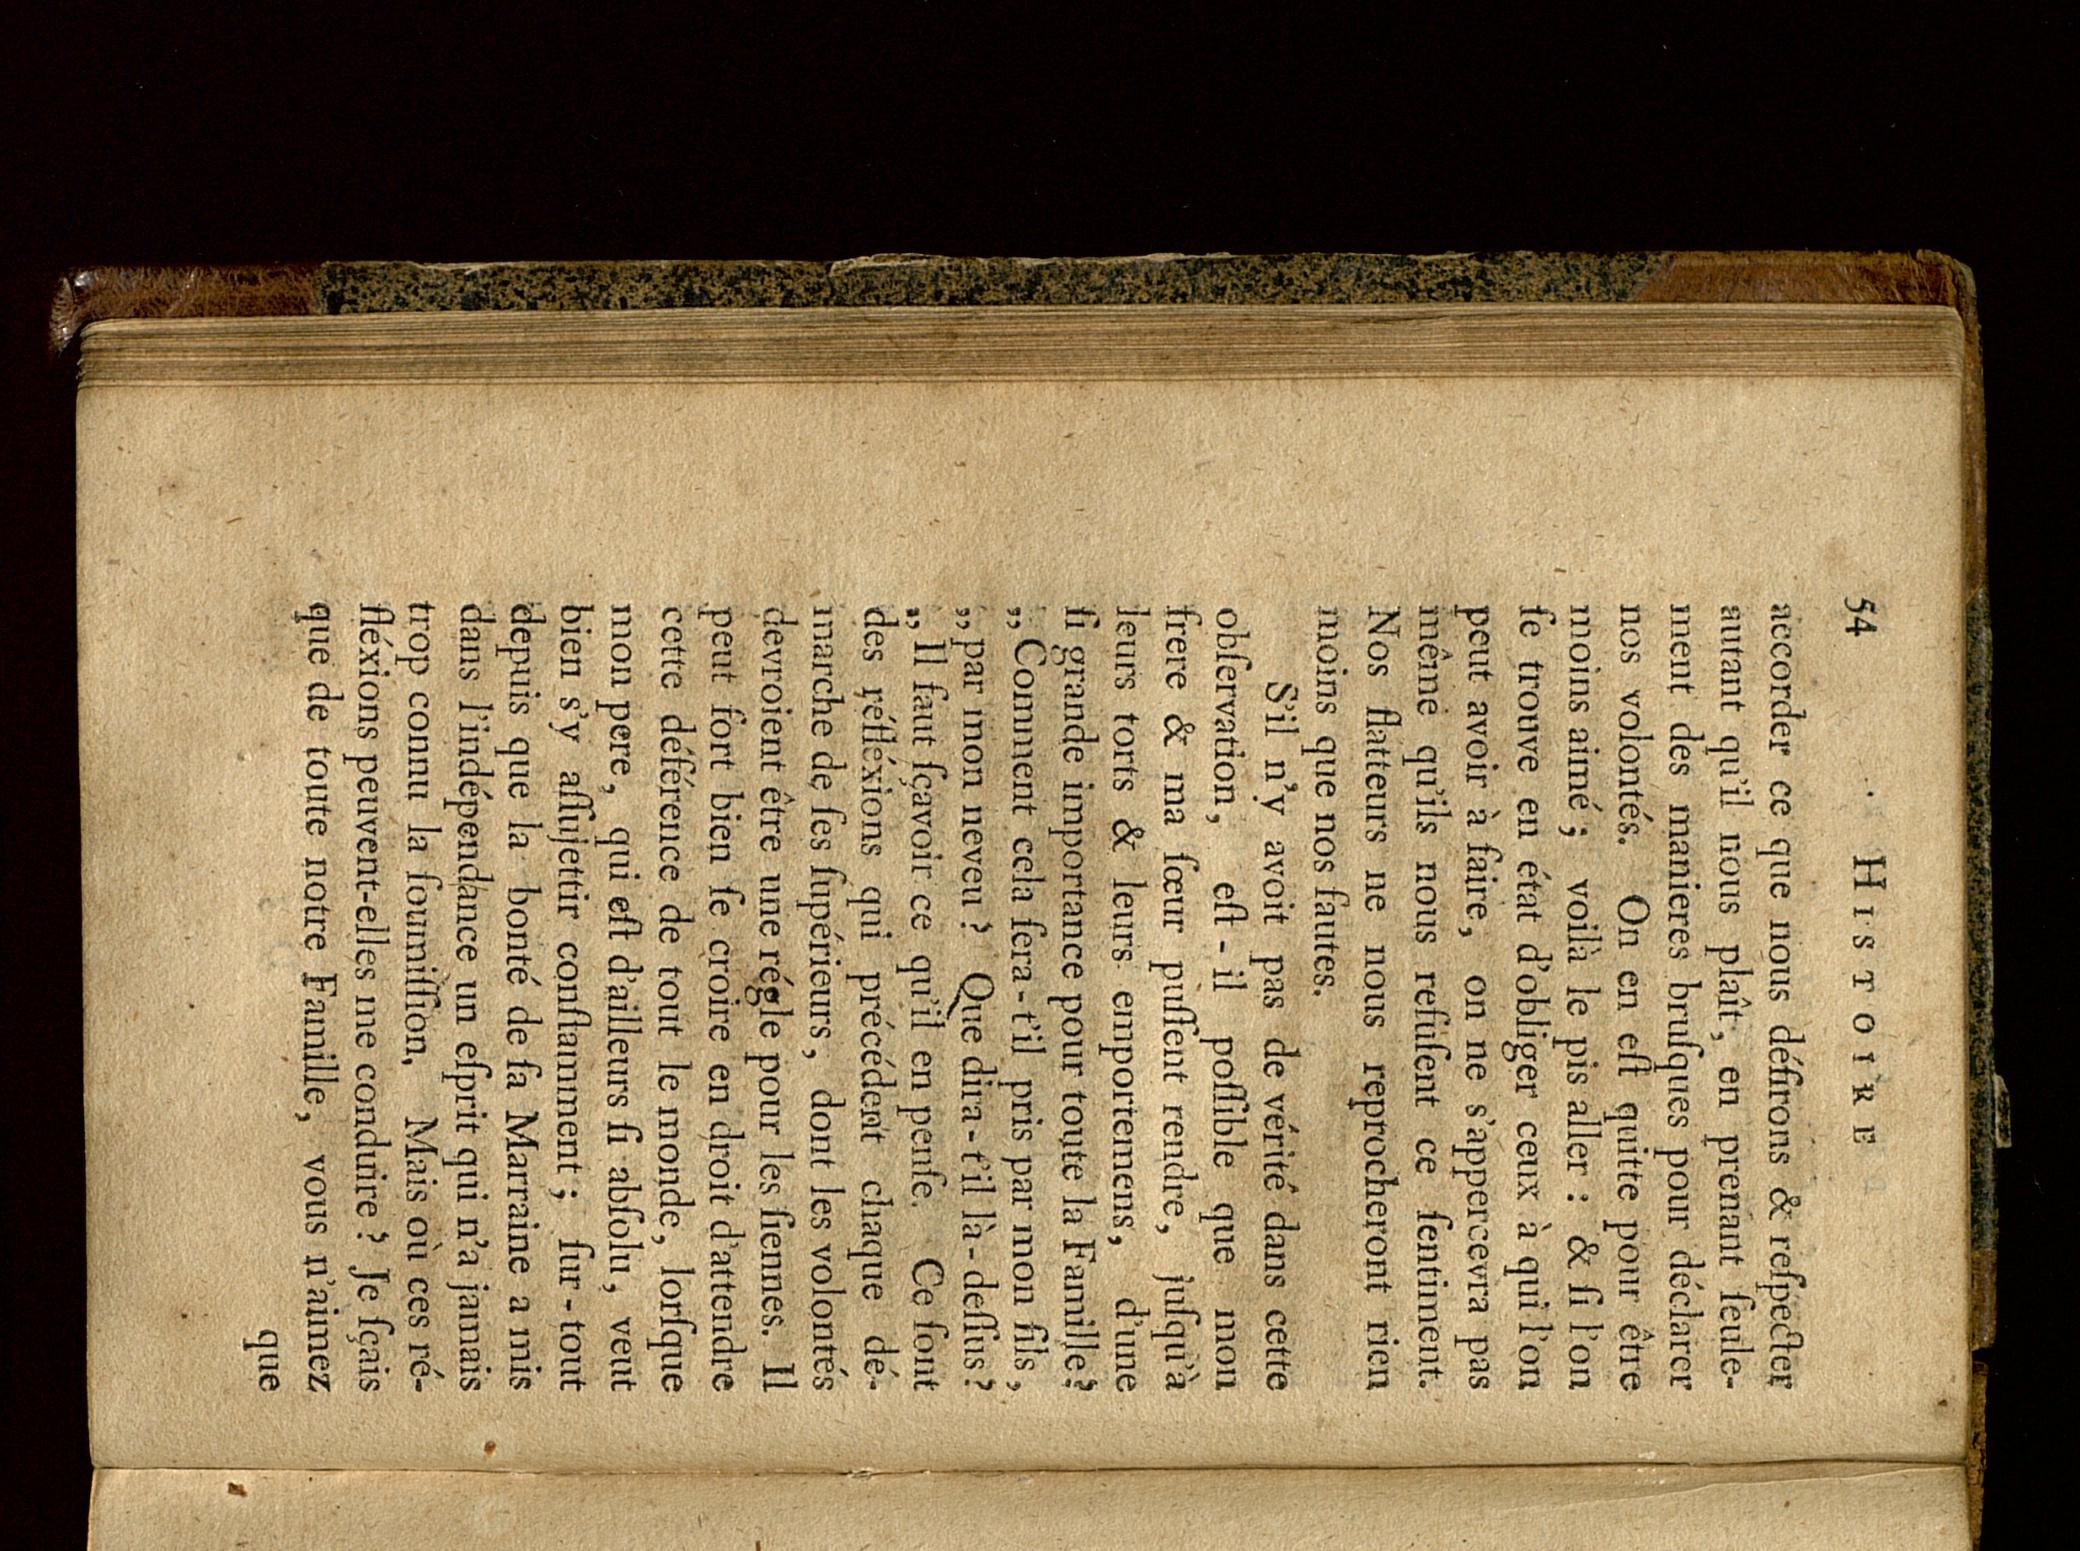 54 HISTOIRE
accorder ce que nous déſirons & reſpecter
autant qu'il nous plaît, en prenant ſeule-
ment des manieres bruſques pour déclarer
nos volontés. On en eſt quitte pour être
moins aimé; voilà le pis aller: & ſi l'on
ſe trouve en état d'obliger ceux à qui l'on
peut avoir à faire, on ne s'appercevra pas
même qu'ils nous refuſent ce ſentiment.
Nos flatteurs ne nous reprocheront rien
moins que nos fautes.
S'il n'y avoit pas de vérité dans cette
obſervation, eſt-il poſſible que mon
frere & ma ſœur puſſent rendre, juſqu'à
leurs torts & leurs emportemens, d'une
ſi grande importance pour toute la Famille?
„ Comment cela ſera-t'il pris par mon fils,
„ par mon neveu? Que dira-t'il là-deſſus?
„ Il faut ſçavoir ce qu'il en penſe. Ce ſont
des réfléxions qui précédent chaque dé-
marche de ſes ſupérieurs, dont les volontés
devroient être une régle pour les ſiennes. Il
peut fort bien ſe croire en droit d'attendre
cette déférence de tout le monde, lorſque
mon pere, qui eſt d'ailleurs ſi abſolu, veut
bien s'y aſſujettir conſtamment; ſur-tout
depuis que la bonté de ſa Marraine a mis
dans l'indépendance un eſprit qui n'a jamais
trop connu la ſoumiſſion. Mais où ces ré-
fléxions peuvent-elles me conduire? Je ſçais
que de toute notre Famille, vous n'aimez
que